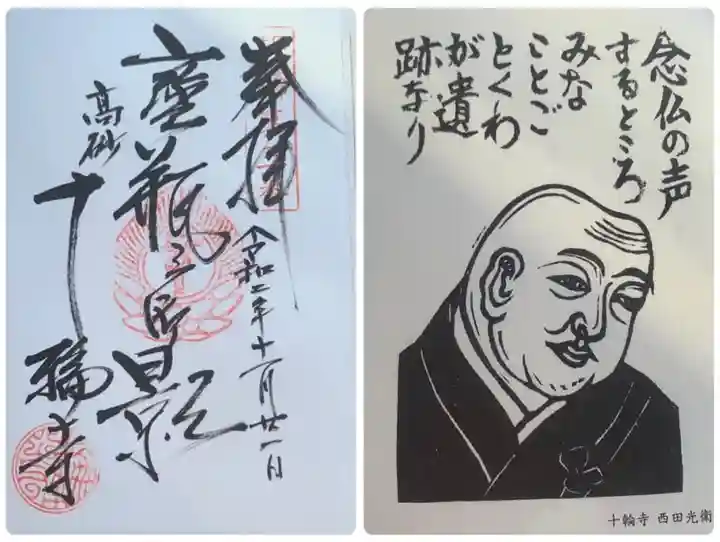 奉拝
令和二年十一月廿一日
瓶
影
高砂
十輪寺
念仏の声
するところ
みな
ことごとくわ
が遺
跡なり
十輪寺 西田光衛